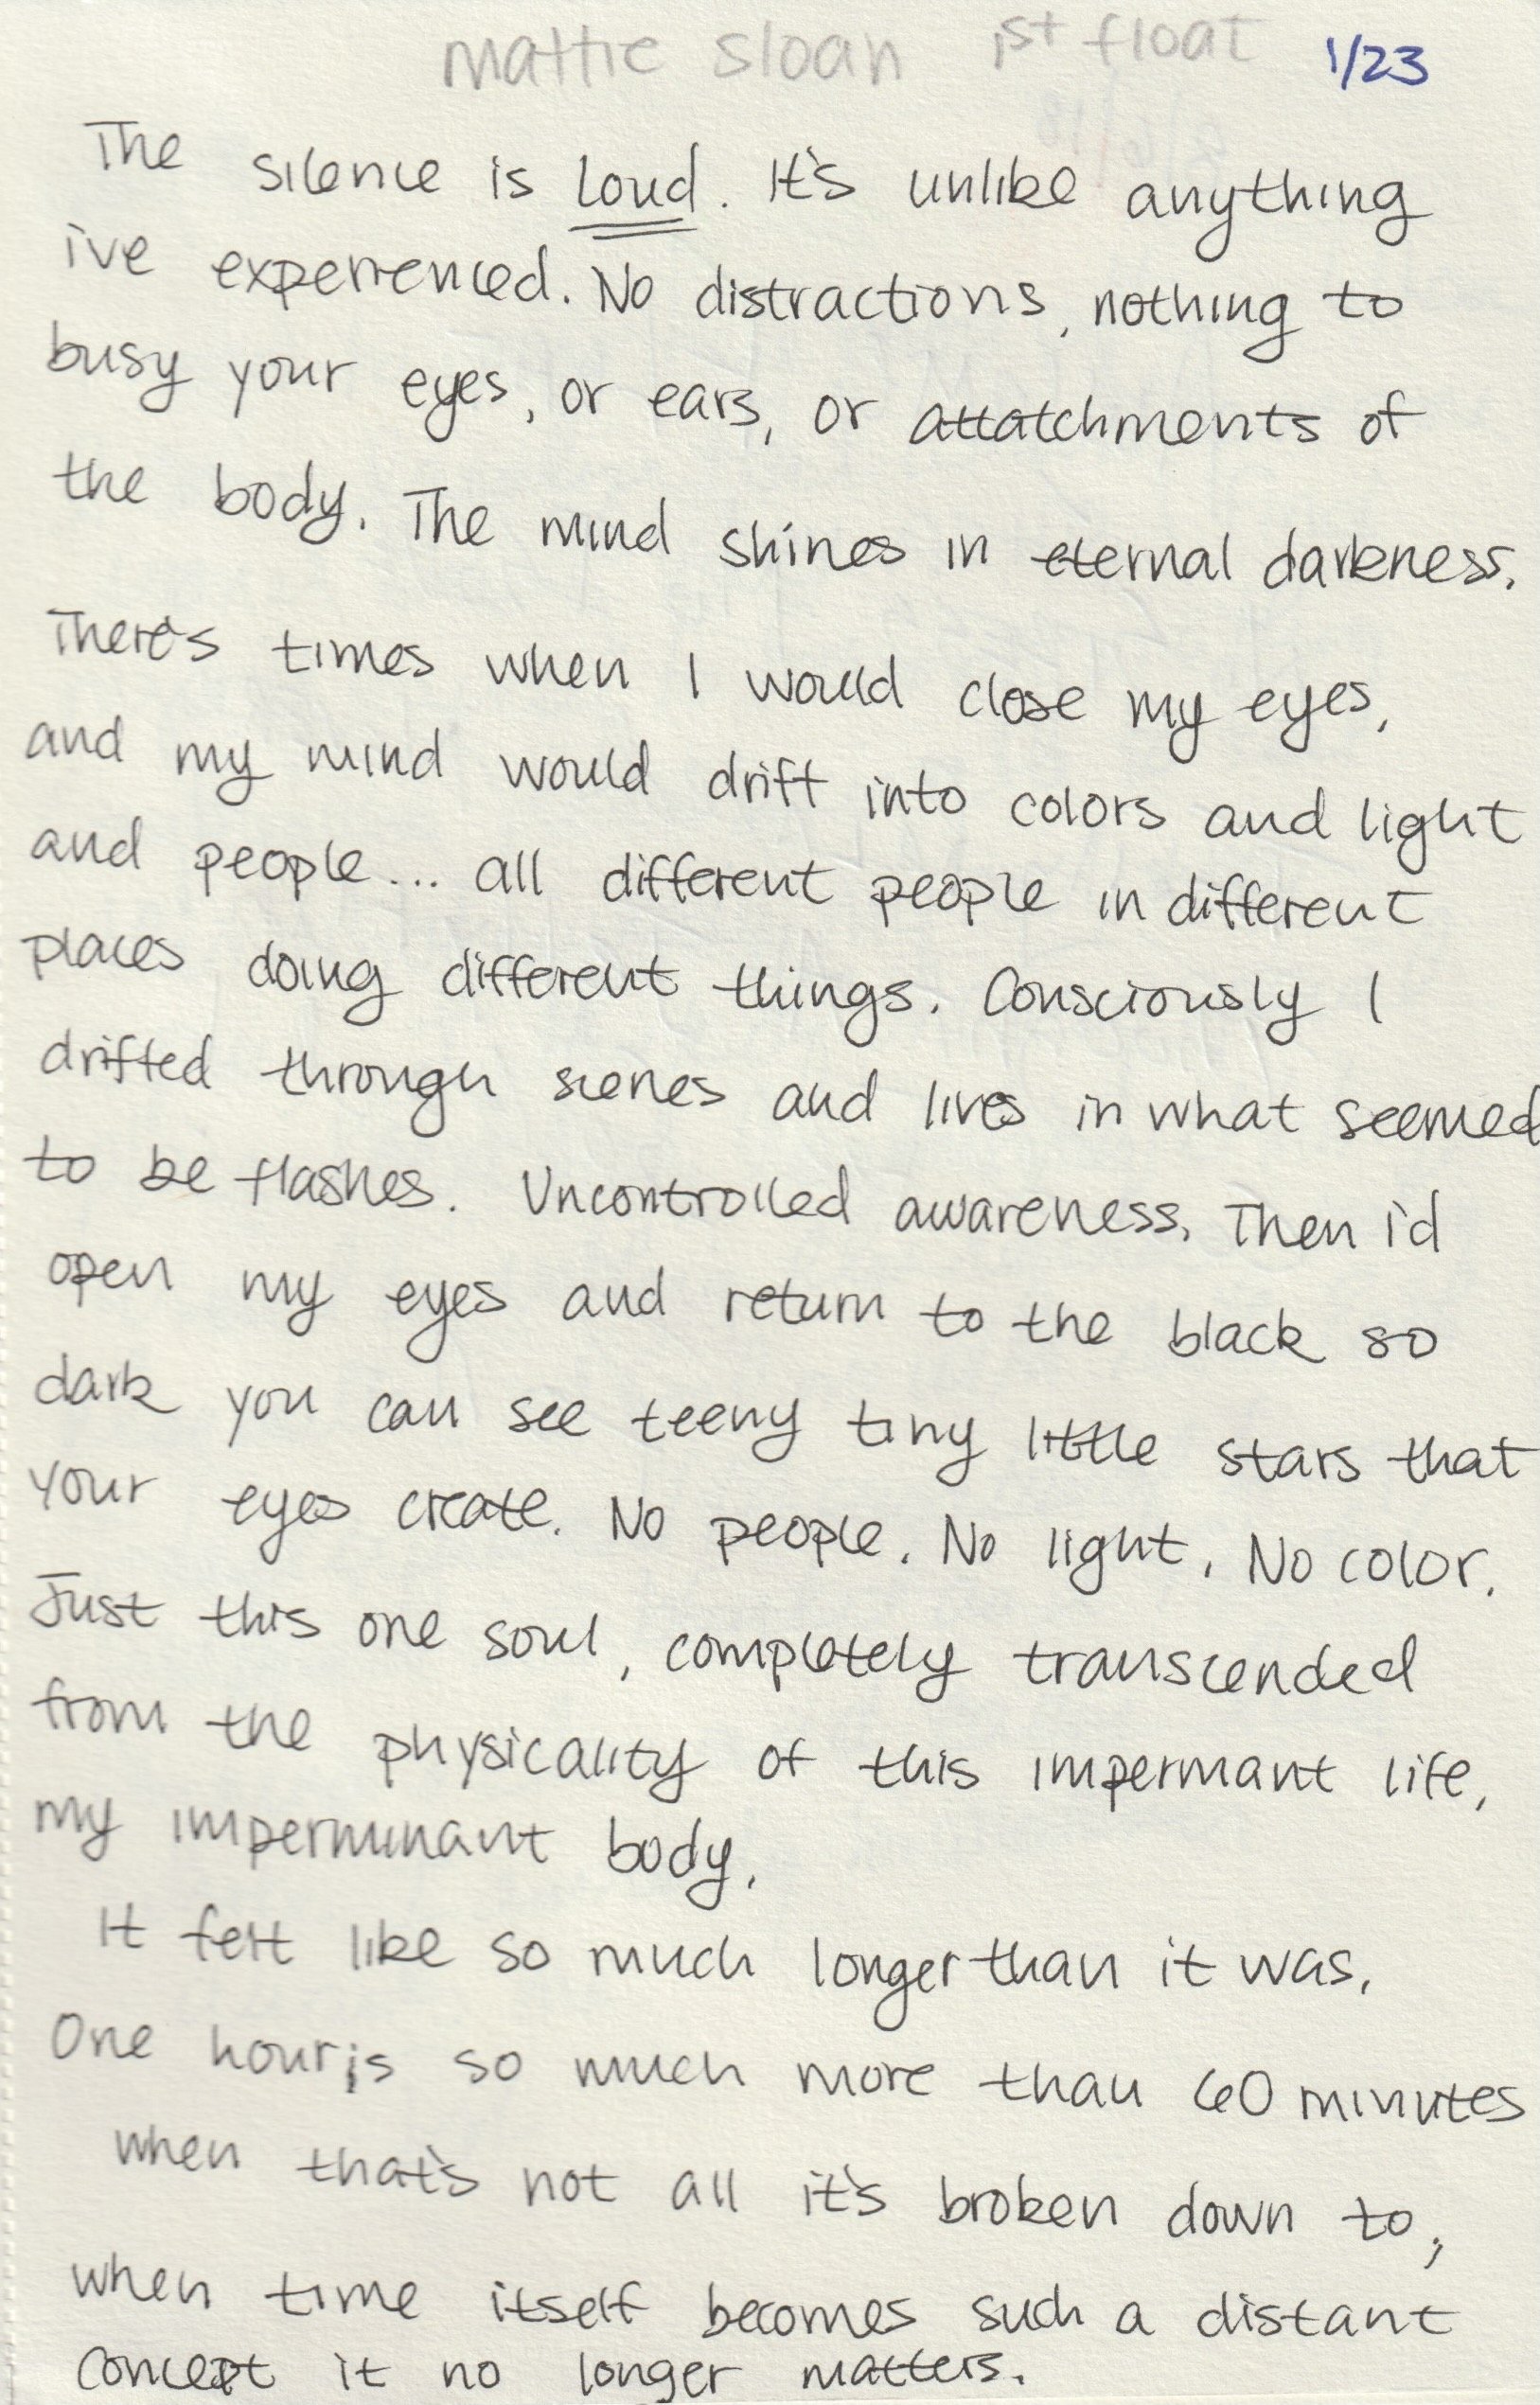 mattie sloan 1st float 1/23
The silence is loud. It's unlike anything
i've experienced. No distractions, nothing to
busy your eyes, or ears, or attatchments of
the body. The mind shines in eternal darkness.
There's times when I would close my eyes,
and my mind would drift into colors and light
and people... all different people in different
places doing different things. Consciously I
drifted through scenes and lives in what seemed
to be flashes. Uncontrolled awareness. Then i'd
open my eyes and return to the black so
dark you can see teeny tiny little stars that
your eyes create. No people. No light. No color.
Just this one soul, completely transcended
from the physicality of this impermant life,
my imperminant body.
It felt like so much longer than it was.
One hour is so much more than 60 minutes
when that's not all it's broken down to;
when time itself becomes such a distant
concept it no longer matters.